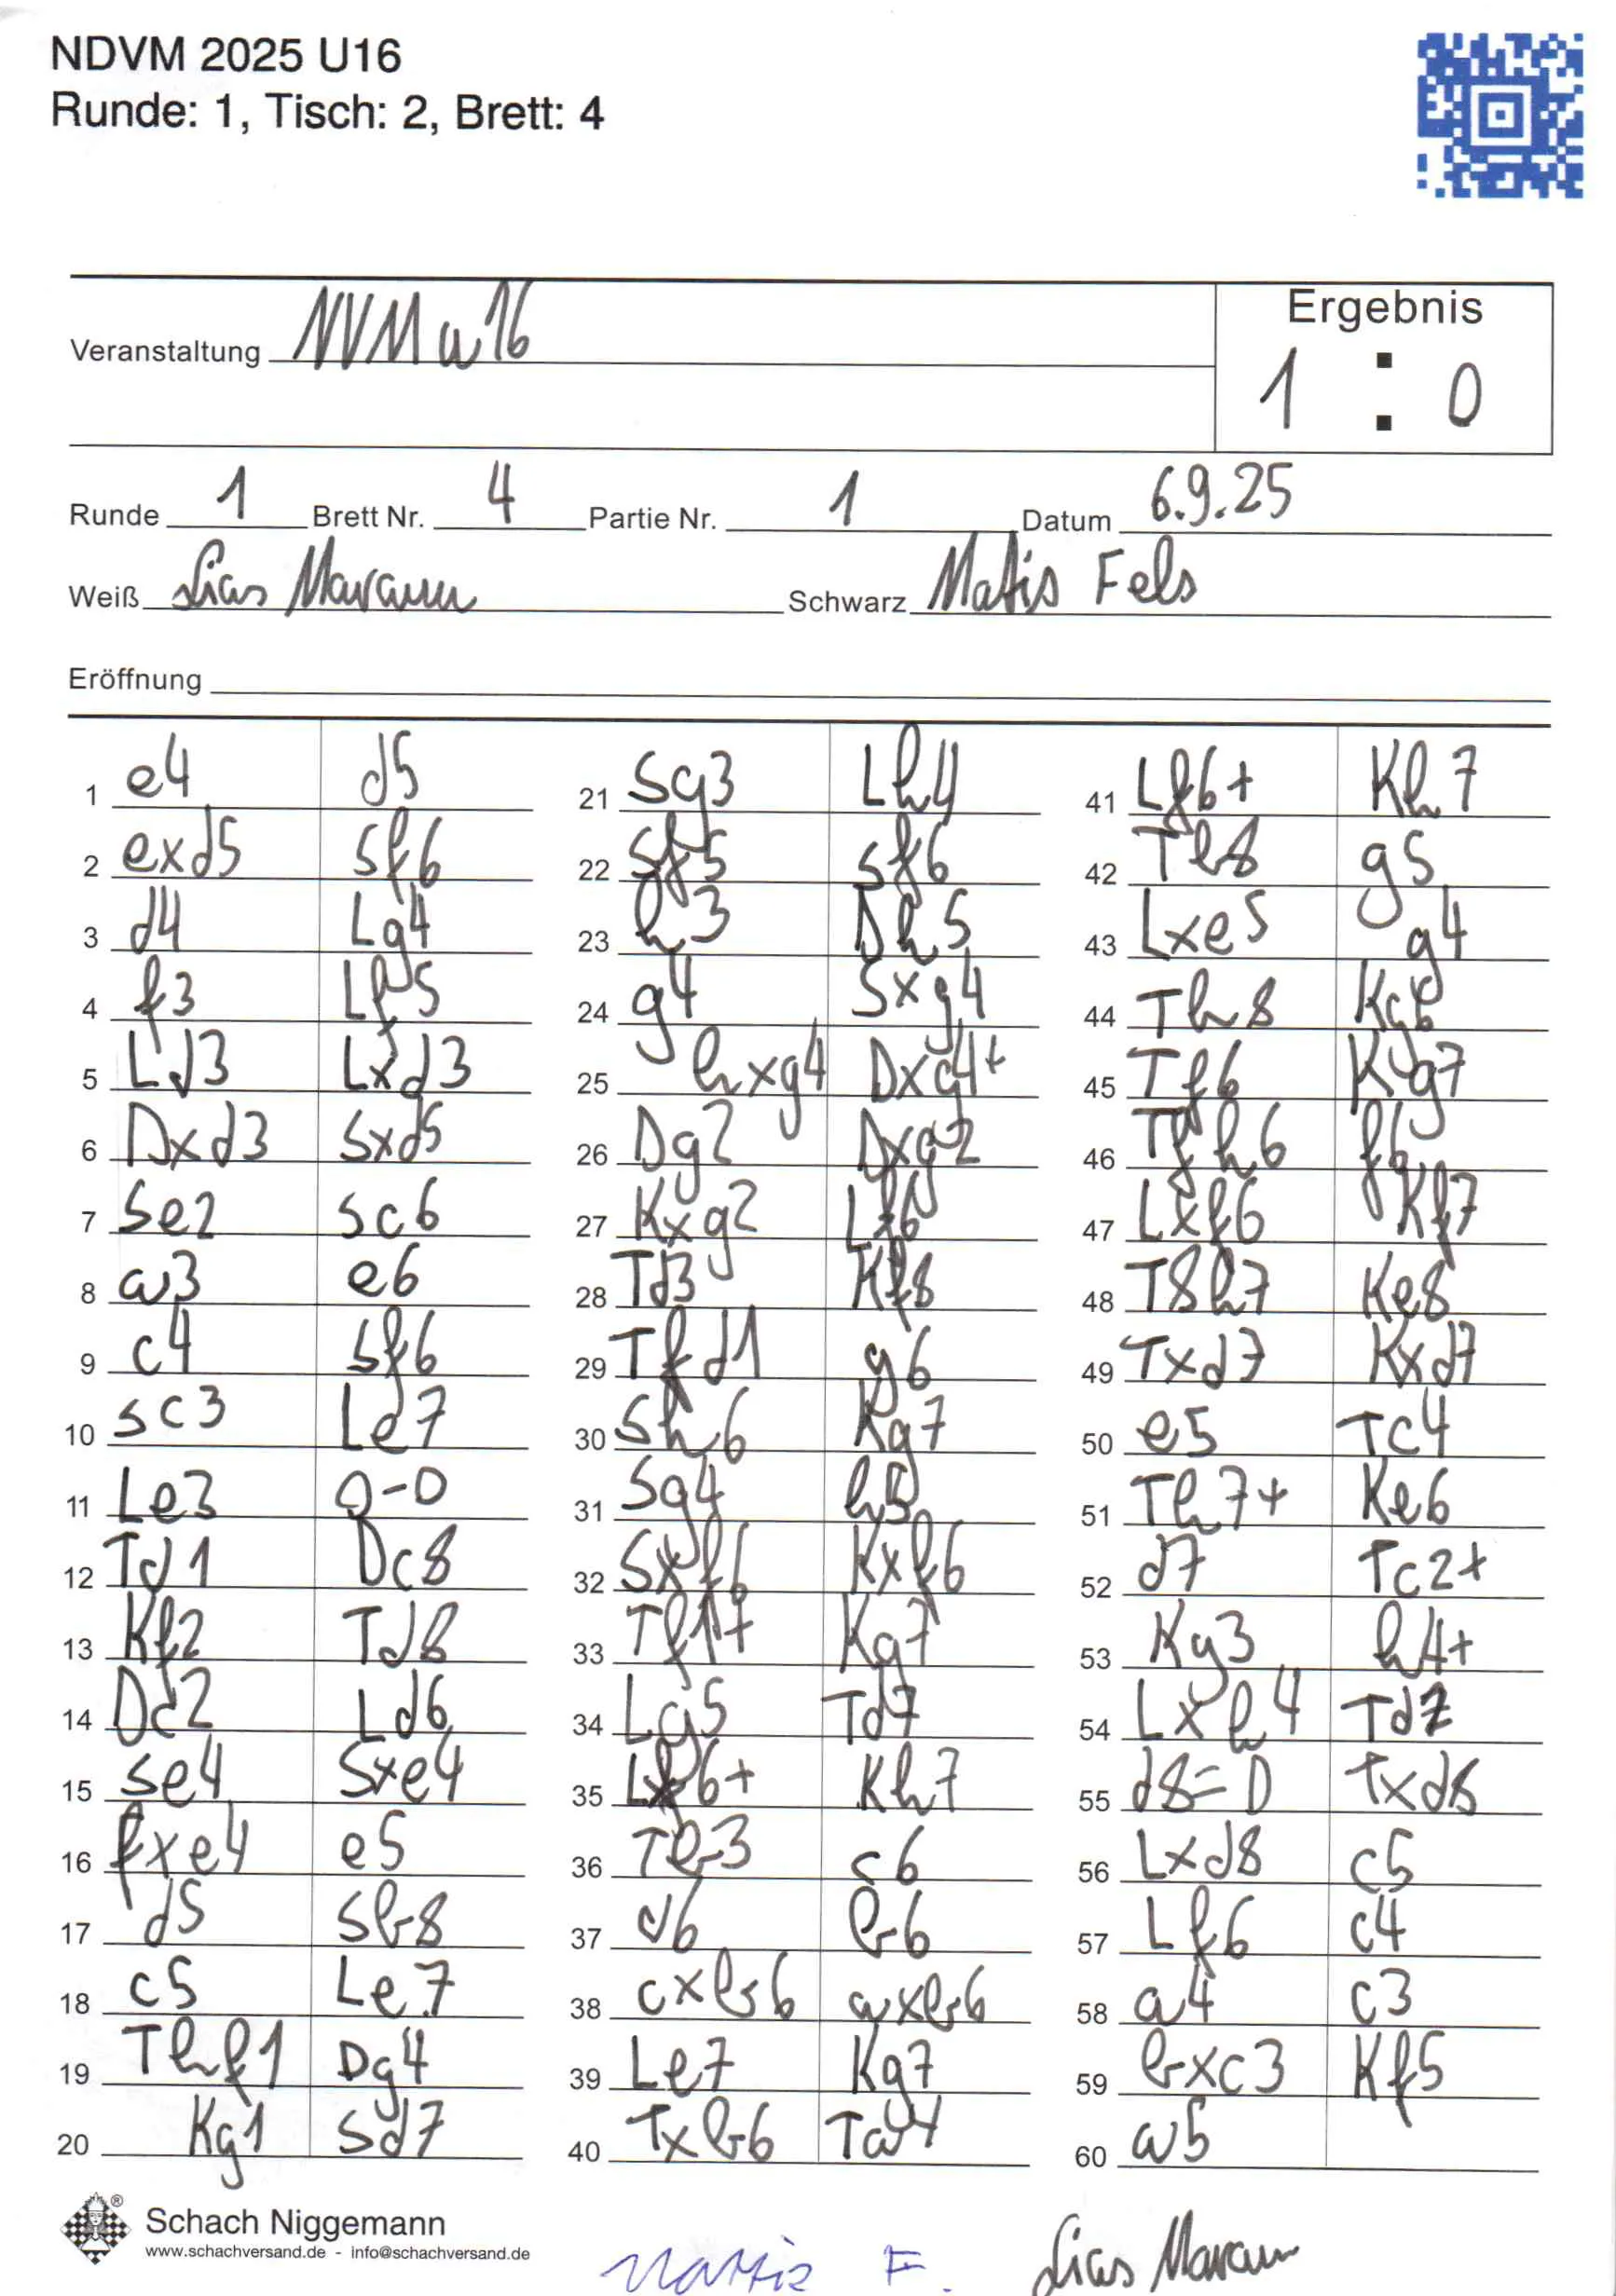 NDVM 2025 U16
Runde: 1, Tisch: 2, Brett: 4
Ergebnis
Veranstaltung NVM u16
1 : 0
Runde 1 Brett Nr. 4 Partie Nr. 1 Datum 6.9.25
Weiß Schwarz Matis Fels
Eröffnung
1 e4 d5
2 exd5 Sf6
3 d4 Lg4
4 f3 Lf5
5 Ld3 Lxd3
6 Dxd3 Sxd5
7 Se2 Sc6
8 a3 e6
9 c4 Sf6
10 Sc3 Le7
11 Le3 0-0
12 Td1 Dc8
13 Kf2 Td8
14 Dd2 Ld6
15 Se4 Sxe4
16 fxe4 e5
17 d5 Sb8
18 c5 Le7
19 Thf1 Dg4
20 Kg1 Sd7
21 Sg3 Lh4
22 Sf5 Sf6
23 h3 Dh5
24 g4 Sxg4
25 hxg4 Dxg4+
26 Dg2 Dxg2
27 Kxg2 Lf6
28 Td3 Kf8
29 Tfd1 g6
30 Sh6 Kg7
31 Sg4 h5
32 Sxf6 Kxf6
33 Tf1+ Kg7
34 Lg5 Td7
35 Lf6+ Kh7
36 Tb3 c6
37 d6 b6
38 cxb6 axb6
39 Le7 Kg7
40 Txb6 Ta4
41 Lf6+ Kh7
42 Tb8 g5
43 Lxe5 g4
44 Th8 Kg6
45 Tf6 Kg7
46 Tfh6 f6
47 Lxf6 Kf7
48 T8h7 Ke8
49 Txd7 Kxd7
50 e5 Tc4
51 Th7+ Ke6
52 d7 Tc2+
53 Kg3 h4+
54 Lxh4 Td2
55 d8=D Txd8
56 Lxd8 c5
57 Lf6 c4
58 a4 c3
59 bxc3 Kf5
60 a5
Schach Niggemann
www.schachversand.de - info@schachversand.de
Mattis F.